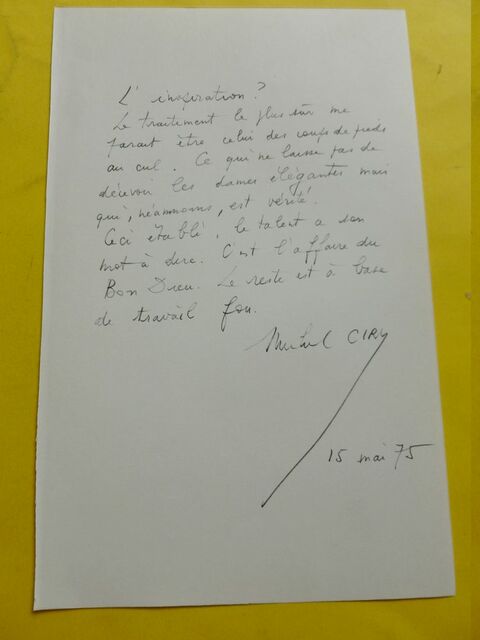 L'inspiration ?
Le traitement le plus sûr me
parait être celui des coups de pieds
au cul. Ce qui ne laisse pas de
décevoir les dames élégantes mais
qui, néanmoins, est vérité.
Ceci établi, le talent a son
mot à dire. C'est l'affaire du
Bon Dieu. Le reste est à base
de travail fou.
Michel CIRY
15 mai 75